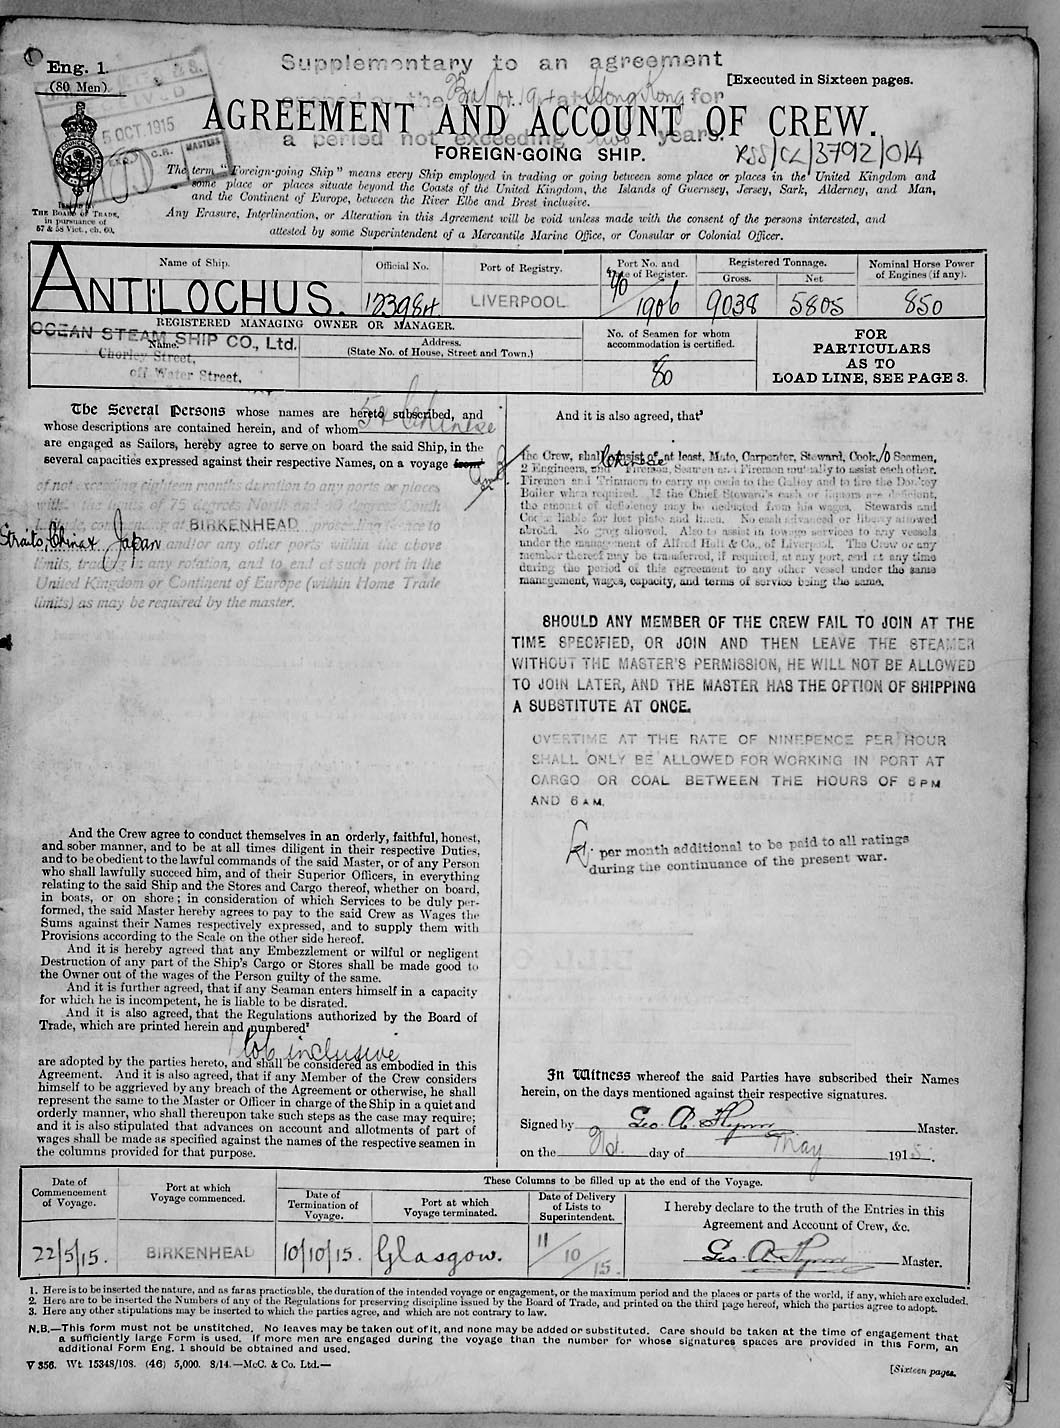 Eng. 1.
(80 Men).
Supplementary to an agreement
[Executed in Sixteen pages.
opened on the at Hong Kong for
AGREEMENT AND ACCOUNT OF CREW.
a period not exceeding two years.
5 OCT. 1915
FOREIGN-GOING SHIP.
RSS/CL/3792/014
The term "Foreign-going Ship" means every Ship employed in trading or going between some place or places in the United Kingdom and
some place or places situate beyond the Coasts of the United Kingdom, the Islands of Guernsey, Jersey, Sark, Alderney, and Man,
and the Continent of Europe, between the River Elbe and Brest inclusive.
ISSUED BY
THE BOARD OF TRADE,
in pursuance of
57 & 58 Vict., ch. 60.
Any Erasure, Interlineation, or Alteration in this Agreement will be void unless made with the consent of the persons interested, and
attested by some Superintendent of a Mercantile Marine Office, or Consular or Colonial Officer.
Name of Ship. Official No. Port of Registry. Port No. and Date of Register. Registered Tonnage. Gross. Net Nominal Horse Power of Engines (if any).
ANTILOCHUS. 123984 LIVERPOOL 90/1906 9038 5805 850
REGISTERED MANAGING OWNER OR MANAGER.
OCEAN STEAM SHIP CO., Ltd.
Name.
Chorley Street,
off Water Street,
Address.
(State No. of House, Street and Town.)
No. of Seamen for whom
accommodation is certified.
80
FOR
PARTICULARS
AS TO
LOAD LINE, SEE PAGE 3.
The Several Persons whose names are hereto subscribed, and
whose descriptions are contained herein, and of whom Chinese
are engaged as Sailors, hereby agree to serve on board the said Ship, in the
several capacities expressed against their respective Names, on a voyage from
of not exceeding eighteen months duration to any ports or places
within the limits of 75 degrees North and degrees South
Latitude, commencing at BIRKENHEAD proceeding thence to
Straits, China & Japan and/or any other ports within the above
limits, trading in any rotation, and to end at such port in the
United Kingdom or Continent of Europe (within Home Trade
limits) as may be required by the master.
And the Crew agree to conduct themselves in an orderly, faithful, honest,
and sober manner, and to be at all times diligent in their respective Duties,
and to be obedient to the lawful commands of the said Master, or of any Person
who shall lawfully succeed him, and of their Superior Officers, in everything
relating to the said Ship and the Stores and Cargo thereof, whether on board,
in boats, or on shore; in consideration of which Services to be duly per-
formed, the said Master hereby agrees to pay to the said Crew as Wages the
Sums against their Names respectively expressed, and to supply them with
Provisions according to the Scale on the other side hereof.
And it is hereby agreed that any Embezzlement or wilful or negligent
Destruction of any part of the Ship's Cargo or Stores shall be made good to
the Owner out of the wages of the Person guilty of the same.
And it is further agreed, that if any Seaman enters himself in a capacity
for which he is incompetent, he is liable to be disrated.
And it is also agreed, that the Regulations authorized by the Board of
Trade, which are printed herein and numbered²
1 to 6 inclusive
are adopted by the parties hereto, and shall be considered as embodied in this
Agreement. And it is also agreed, that if any Member of the Crew considers
himself to be aggrieved by any breach of the Agreement or otherwise, he shall
represent the same to the Master or Officer in charge of the Ship in a quiet and
orderly manner, who shall thereupon take such steps as the case may require;
and it is also stipulated that advances on account and allotments of part of
wages shall be made as specified against the names of the respective seamen in
the columns provided for that purpose.
And it is also agreed, that³
the Crew, shall consist of, at least, Mate, Carpenter, Steward, Cook, 10 Seamen,
2 Engineers, and Chinese Firemen, Seamen and Firemen mutually to assist each other.
Firemen and Trimmers to carry up coals to the Galley and to fire the Donkey
Boiler when required. If the Chief Steward's cash or liquors are deficient,
the amount of deficiency may be deducted from his wages. Stewards and
Cook liable for lost plate and linen. No cash advanced or liberty allowed
abroad. No grog allowed. Also to assist in towage services to any vessels
under the management of Alfred Holt & Co., of Liverpool. The Crew or any
member thereof may be transferred, if required, at any port, and at any time
during the period of this agreement to any other vessel under the same
management, wages, capacity, and terms of service being the same.
SHOULD ANY MEMBER OF THE CREW FAIL TO JOIN AT THE
TIME SPECIFIED, OR JOIN AND THEN LEAVE THE STEAMER
WITHOUT THE MASTER'S PERMISSION, HE WILL NOT BE ALLOWED
TO JOIN LATER, AND THE MASTER HAS THE OPTION OF SHIPPING
A SUBSTITUTE AT ONCE.
OVERTIME AT THE RATE OF NINEPENCE PER HOUR
SHALL ONLY BE ALLOWED FOR WORKING IN PORT AT
CARGO OR COAL BETWEEN THE HOURS OF 6 PM
AND 6 AM.
per month additional to be paid to all ratings
during the continuance of the present war.
In Witness whereof the said Parties have subscribed their Names
herein, on the days mentioned against their respective signatures.
Signed by Geo. A. Flynn Master.
on the 21st. day of May 1915.
Date of Commencement of Voyage. Port at which Voyage commenced. These Columns to be filled up at the end of the Voyage.
Date of Termination of Voyage. Port at which Voyage terminated. Date of Delivery of Lists to Superintendent. I hereby declare to the truth of the Entries in this
Agreement and Account of Crew, &c.
22/5/15. BIRKENHEAD 10/10/15. Glasgow. 11/10/15. Geo. A. Flynn Master.
1. Here is to be inserted the nature, and as far as practicable, the duration of the intended voyage or engagement, or the maximum period and the places or parts of the world, if any, which are excluded.
2. Here are to be inserted the Numbers of any of the Regulations for preserving discipline issued by the Board of Trade, and printed on the third page hereof, which the parties agree to adopt.
3. Here any other stipulations may be inserted to which the parties agree, and which are not contrary to law.
N.B.—This form must not be unstitched. No leaves may be taken out of it, and none may be added or substituted. Care should be taken at the time of engagement that
a sufficiently large Form is used. If more men are engaged during the voyage than the number for whose signatures spaces are provided in this Form, an
additional Form Eng. 1 should be obtained and used.
V 356. Wt. 15348/108. (46) 5,000. 8/14.—McC. & Co. Ltd.—
[Sixteen pages.